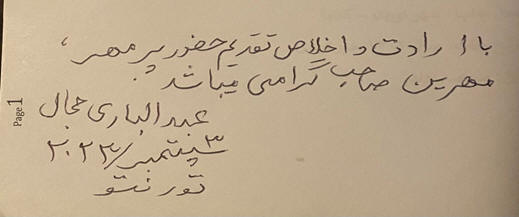 با ارادت و اخلاص تقدیم حضور پر مهر،
مهرین صاحب گرامی میباشد
عبدالباری جمال
۳ سپتمبر/۲۰۲۳
تورنتو
Page 1